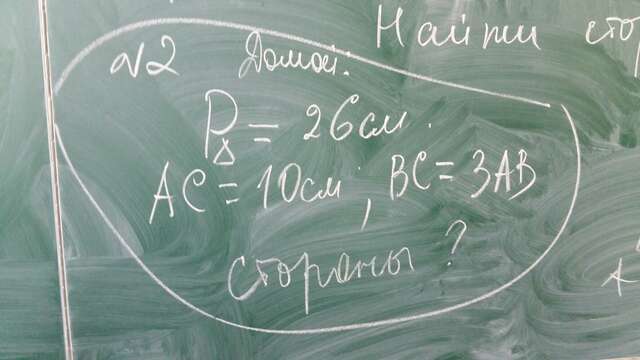 Найти
№2 Домой:
P△ = 26 см.
AC = 10 см; BC = 3AB
стороны?